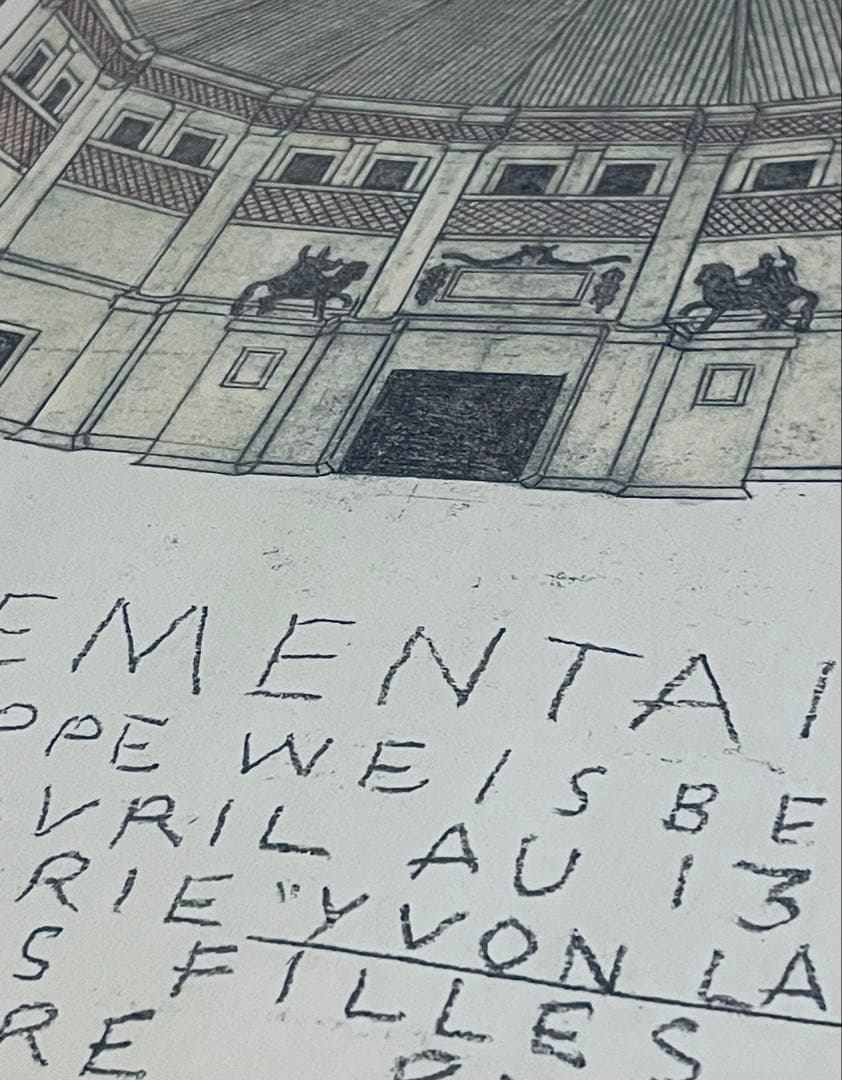 EMENTAI
PPE WEISBE
VRIL AU 13
RIE "YVON LA
S FILLES
RE